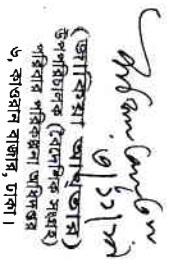 ৩|১১|১৯
(জাকিয়া আখতার)
উপপরিচালক (বৈদেশিক সংগ্রহ)
পরিবার পরিকল্পনা অধিদপ্তর
৬, কাওরান বাজার, ঢাকা।